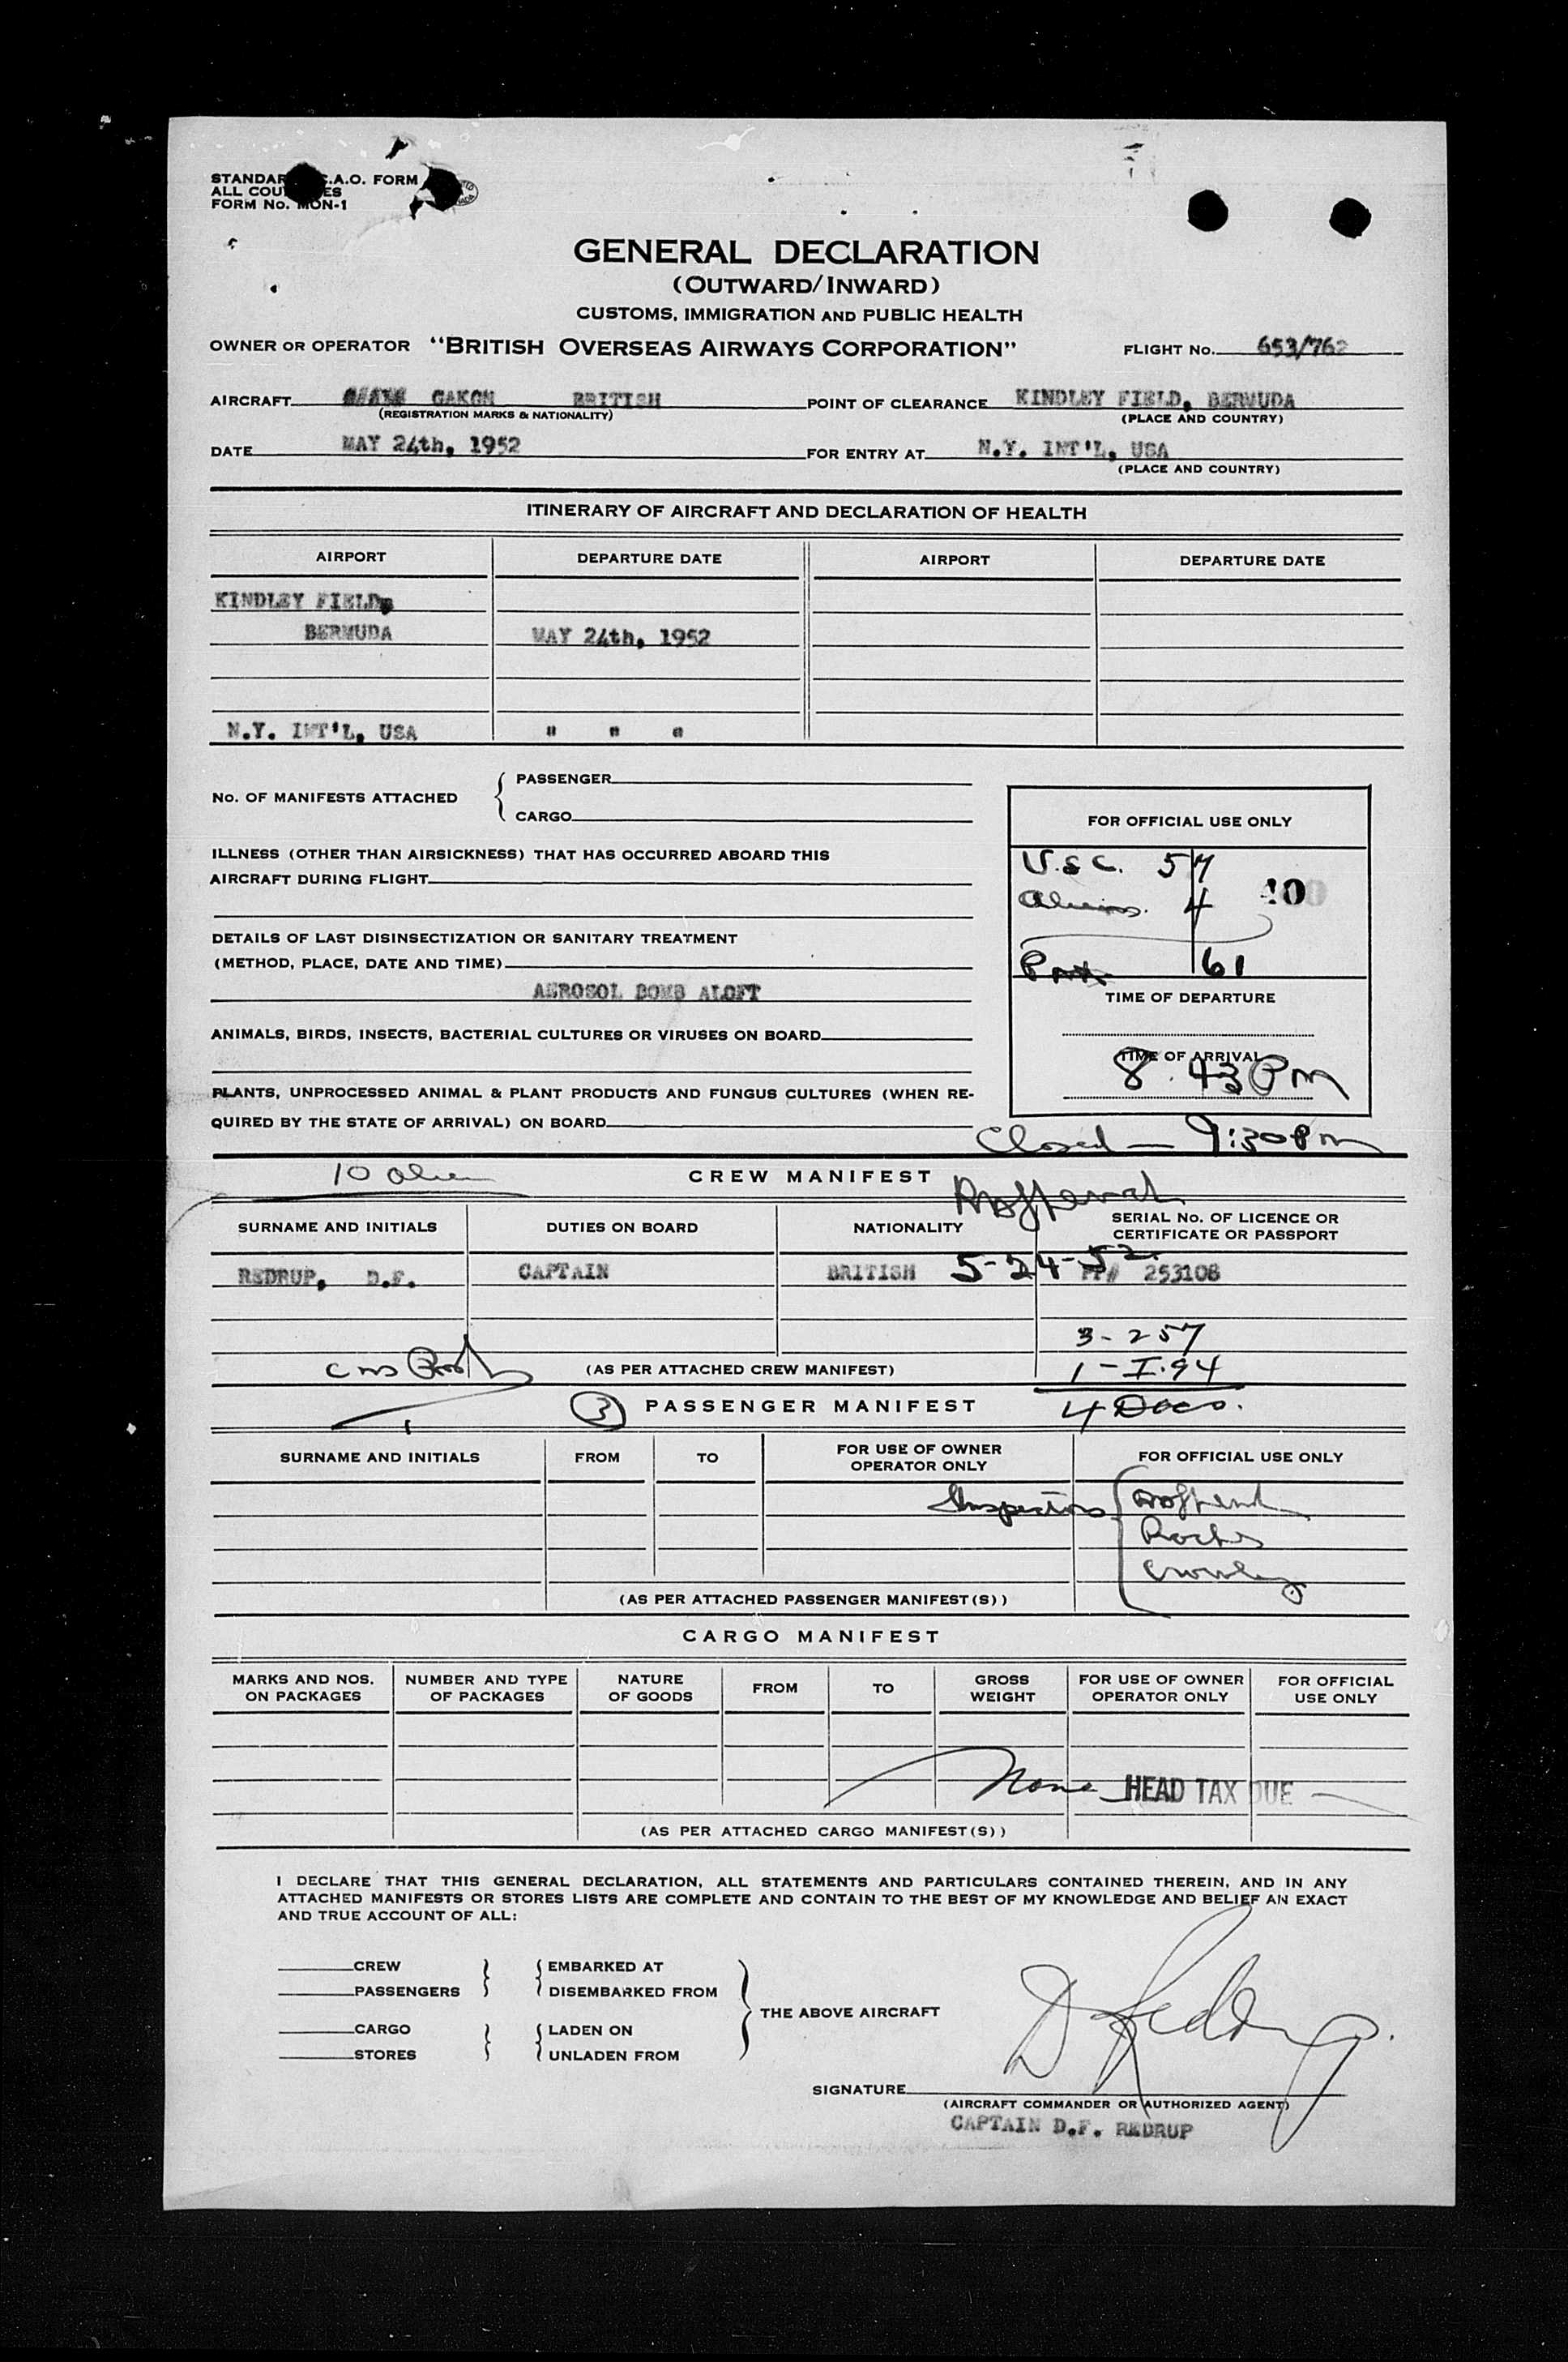 STANDARD I.C.A.O. FORM
ALL COUNTRIES
FORM No. MON-1
GENERAL DECLARATION
(OUTWARD/INWARD)
CUSTOMS, IMMIGRATION AND PUBLIC HEALTH
OWNER OR OPERATOR "BRITISH OVERSEAS AIRWAYS CORPORATION" FLIGHT No. 653/762
AIRCRAFT GAKGM BRITISH POINT OF CLEARANCE KINDLEY FIELD, BERMUDA
(REGISTRATION MARKS & NATIONALITY) (PLACE AND COUNTRY)
DATE MAY 24th, 1952 FOR ENTRY AT N.Y. INT'L, USA
(PLACE AND COUNTRY)
ITINERARY OF AIRCRAFT AND DECLARATION OF HEALTH
AIRPORT DEPARTURE DATE AIRPORT DEPARTURE DATE
KINDLEY FIELD,
BERMUDA MAY 24th, 1952
N.Y. INT'L, USA " " "
No. OF MANIFESTS ATTACHED { PASSENGER
CARGO
FOR OFFICIAL USE ONLY
U.S.C. 57
Aliens. 4
61
TIME OF DEPARTURE
TIME OF ARRIVAL
8.43 Pm
ILLNESS (OTHER THAN AIRSICKNESS) THAT HAS OCCURRED ABOARD THIS
AIRCRAFT DURING FLIGHT
DETAILS OF LAST DISINSECTIZATION OR SANITARY TREATMENT
(METHOD, PLACE, DATE AND TIME)
AEROSOL BOMB ALOFT
ANIMALS, BIRDS, INSECTS, BACTERIAL CULTURES OR VIRUSES ON BOARD
PLANTS, UNPROCESSED ANIMAL & PLANT PRODUCTS AND FUNGUS CULTURES (WHEN RE-
QUIRED BY THE STATE OF ARRIVAL) ON BOARD
Closed — 9:30 Pm
10 Alien CREW MANIFEST
SURNAME AND INITIALS DUTIES ON BOARD NATIONALITY SERIAL No. OF LICENCE OR
CERTIFICATE OR PASSPORT
5-24-52
REDRUP, D.F. CAPTAIN BRITISH PP# 253108
3 - 257
(AS PER ATTACHED CREW MANIFEST) 1 - I.94
③ PASSENGER MANIFEST 4 Docs.
SURNAME AND INITIALS FROM TO FOR USE OF OWNER
OPERATOR ONLY FOR OFFICIAL USE ONLY
Inspectors
(AS PER ATTACHED PASSENGER MANIFEST(S))
CARGO MANIFEST
MARKS AND NOS.
ON PACKAGES NUMBER AND TYPE
OF PACKAGES NATURE
OF GOODS FROM TO GROSS
WEIGHT FOR USE OF OWNER
OPERATOR ONLY FOR OFFICIAL
USE ONLY
None HEAD TAX DUE
(AS PER ATTACHED CARGO MANIFEST(S))
I DECLARE THAT THIS GENERAL DECLARATION, ALL STATEMENTS AND PARTICULARS CONTAINED THEREIN, AND IN ANY
ATTACHED MANIFESTS OR STORES LISTS ARE COMPLETE AND CONTAIN TO THE BEST OF MY KNOWLEDGE AND BELIEF AN EXACT
AND TRUE ACCOUNT OF ALL:
CREW EMBARKED AT
PASSENGERS DISEMBARKED FROM
THE ABOVE AIRCRAFT
CARGO LADEN ON
STORES UNLADEN FROM
SIGNATURE D F Redrup.
(AIRCRAFT COMMANDER OR AUTHORIZED AGENT)
CAPTAIN D.F. REDRUP